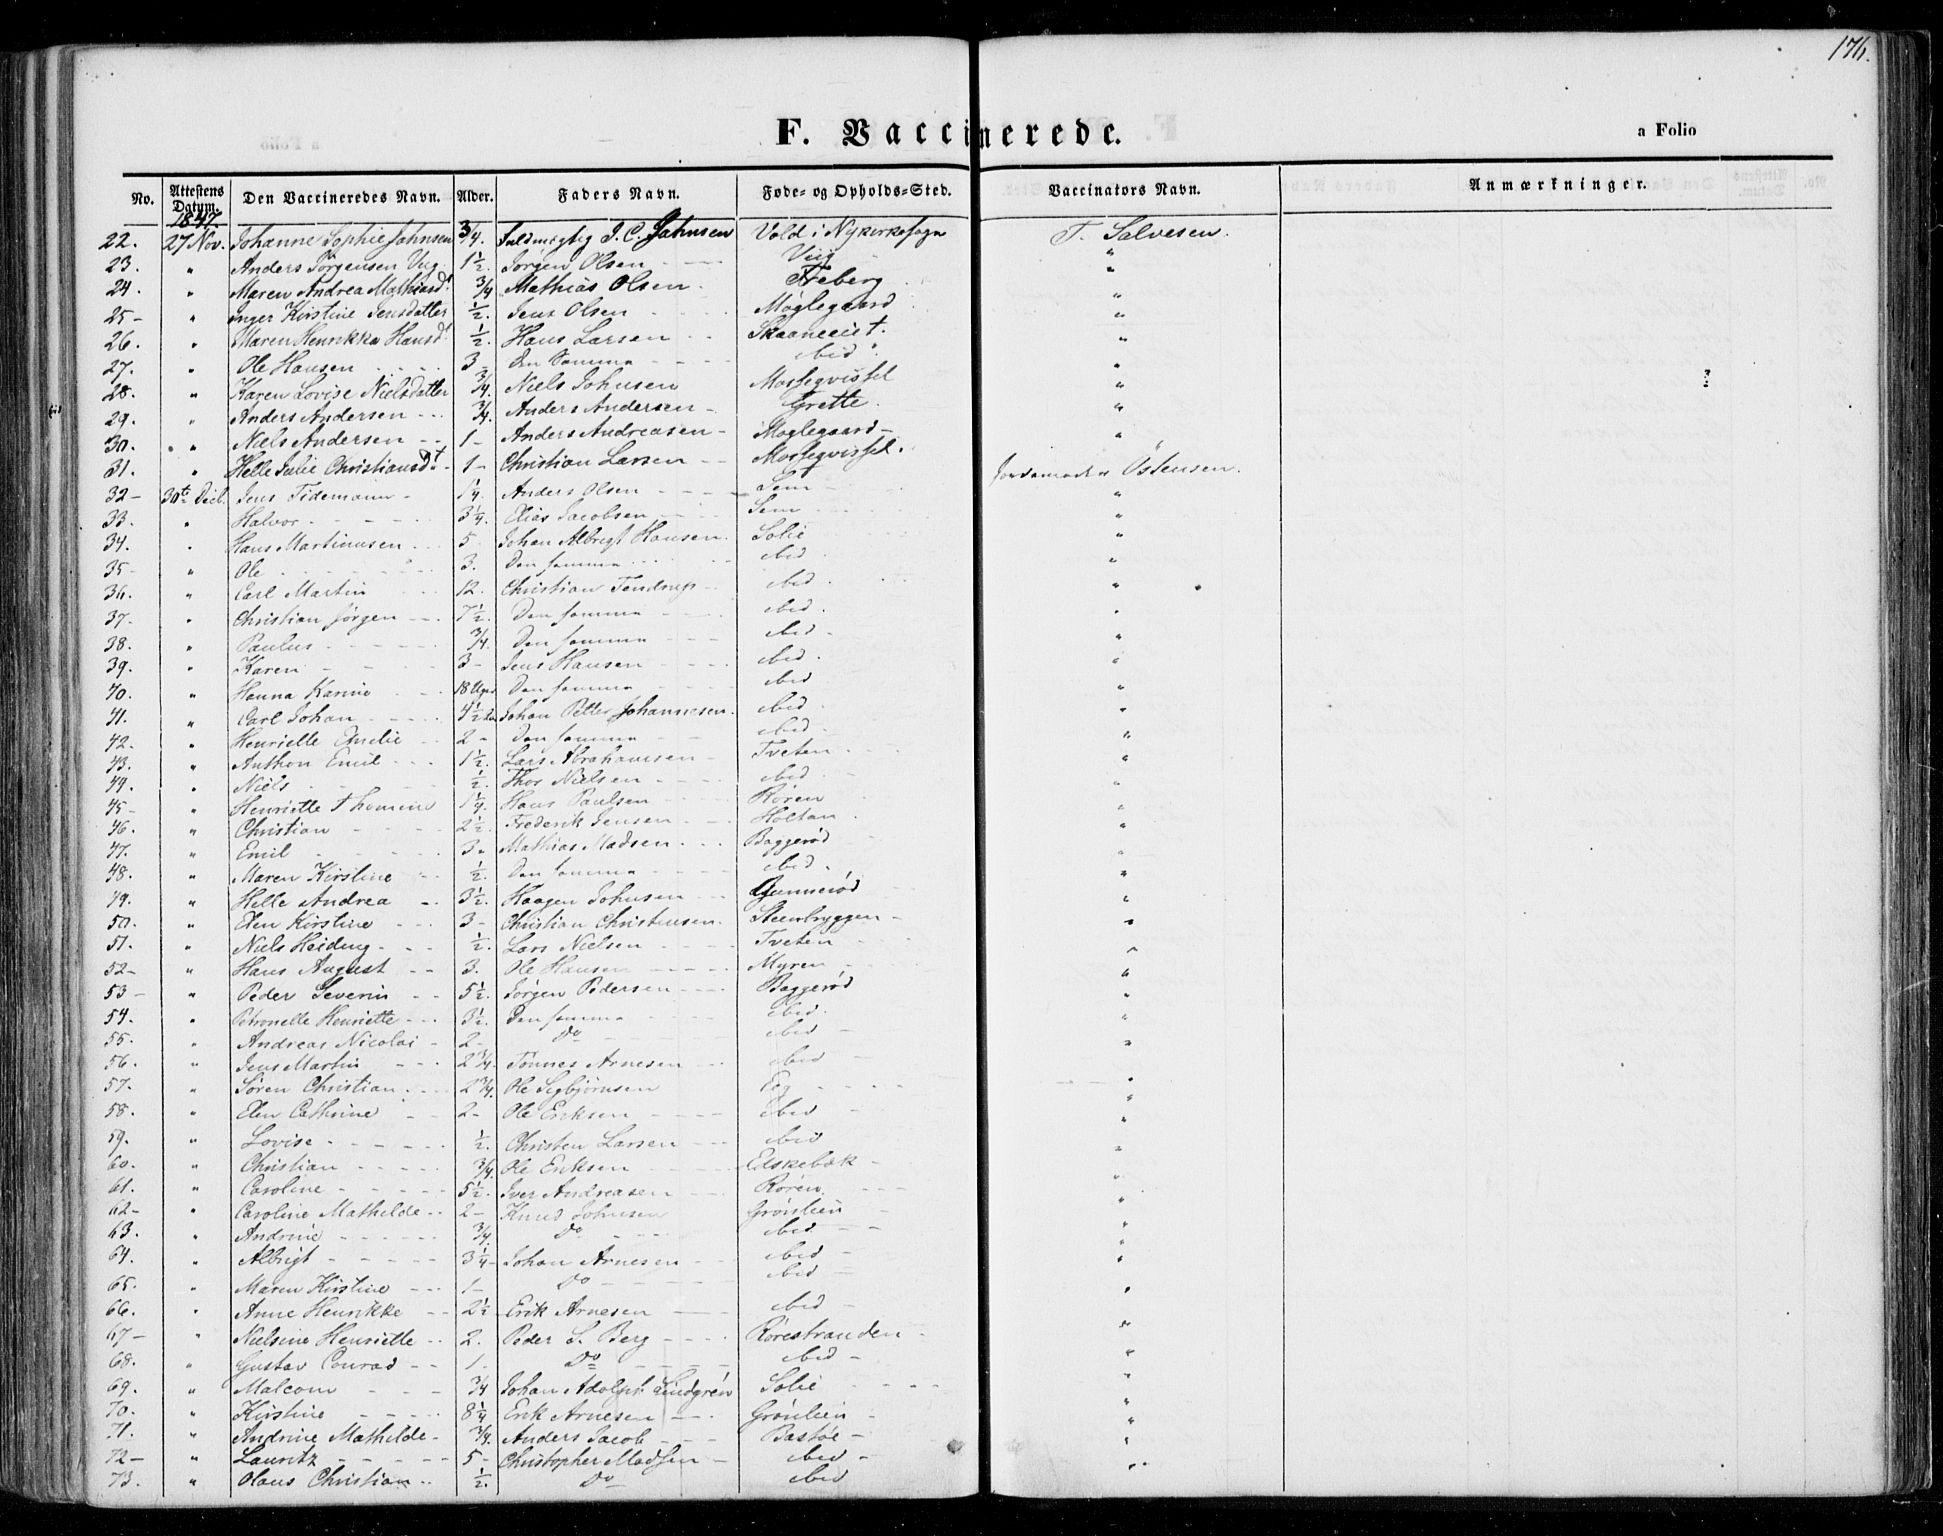 176.
F. Vaccinerede.
a Folio
No. Attestens Datum. Den Vaccineredes Navn. Alder. Faders Navn. Føde- og Opholds-Sted. Vaccinators Navn. Anmærkninger.
1847.
22. 27 Nov. Johanne Sophie Jahnsen 3/4. Fuldmægtig J. C. Jahnsen Vold i Nykirke sogn T. Salvesen.
23. " Anders Jørgensen Viig 1 1/2. Jørgen Olsen Viig "
24. " Maren Andrea Mathiasd. 3/4 Mathias Olsen Freberg "
25 - " Inger Kirstine Jensdatter 1/2. Jens Olsen Møglegaard "
26. " Maren Henrikka Hansd. 1/2. Hans Larsen Skaaneeiet. "
27. " Ole Hansen 3 Den Samme ibid. "
28. " Karen Lovise Nielsdatter 3/4 Niels Johnsen Mossegvissel "
29. " Anders Andersen 3/4. Anders Andersen Grette. "
30. " Niels Andersen 1 - Anders Andreasen Moglegaard "
31. " Helle Julie Christiansdt. 1 - Christian Larsen Mossegvissel. "
32 - 30te Decb. Jens Tidemann 1/4. Anders Olsen Sem Jordemoder Østensen.
33. " Halvor 3 1/4. Elias Jacobsen Sem "
34. " Hans Martinusen 5 Johan Albregt Hansen. Solie "
35 - " Ole 3. Den samme ibid "
36. " Carl Martin 12. Christian Tendrup ibid. "
37 - " Christian Jørgen 7 1/2. Den samme ibid. "
38. " Paulus 3/4. Den samme ibid. "
39. " Karen 3 - Jens Hansen ibid. "
40. " Hanna Karine 18 Uger Den samme ibid. "
41. " Carl Johan 4 1/2 Johan Petter Johannesen. ibid. "
42. " Henriette Emelie 2 - Den samme ibid. "
43. " Anthon Emil 1 1/2. Lars Abrahamsen Tveten "
44. " Niels 1/2. Thor Nielsen ibid "
45 - " Henriette Thomine 1 1/4. Hans Paulsen Røren "
46. " Christian 2 1/2. Frederik Jensen Holtan "
47. " Emil 3 - Mathias Madsen Baggerød "
48. " Maren Kirstine 1/2. Den samme ibid. "
49. " Helle Andrea 3 1/2. Haagen Johnsen Gunnerød "
50. " Elen Kirstine 3 - Christian Christensen. Steenbryggen "
51. " Niels Heideng 1/2. Lars Nielsen Tveten "
52 - " Hans August 3. Ole Hansen Myren "
53 - " Peder Severin 5 1/2. Jørgen Pedersen Baggerød "
54. " Petronelle Henriette 3 1/2. Den samme ibid. "
55. " Andreas Nicolai 2 - Do ibid "
56. " Jens Martin 2 3/4. Tønnes Arnesen ibid "
57. " Søren Christian 2 3/4. Ole Segbjørnsen Eeg "
58. " Elen Cathrine 2 - Ole Eriksen ibid "
59. " Lovise 1/2. Christen Larsen ibid "
60. " Christian 3/4. Ole Eriksen Edskebæk "
61. " Caroline 5 1/2. Iver Andreasen Røren "
62 - " Caroline Mathilde 2 - Knud Johnsen Grønlien "
63. " Andrine 3/4. Do ibid "
64. " Albrigt 3 1/4 - Johan Arnesen ibid "
65. " Maren Kirstine 1 - Do ibid "
66. " Anne Henrikke 2 1/2 Erik Arnesen ibid "
67 - " Nielsine Henriette 2. Peder S. Berg Rørestranden "
68. " Gustav Conrad 1. Do ibid "
69. " Malcom 3/4 Johan Adolph Lindgren Solie "
70. " Kirstine 8 1/4 Erik Arnesen Grønlien "
71. " Andrine Mathilde 3/4. Anders Jacob Bastøe "
72 - " Lauritz 5 - Christopher Madsen ibid "
73. " Olaus Christian 1/2. Do ibid